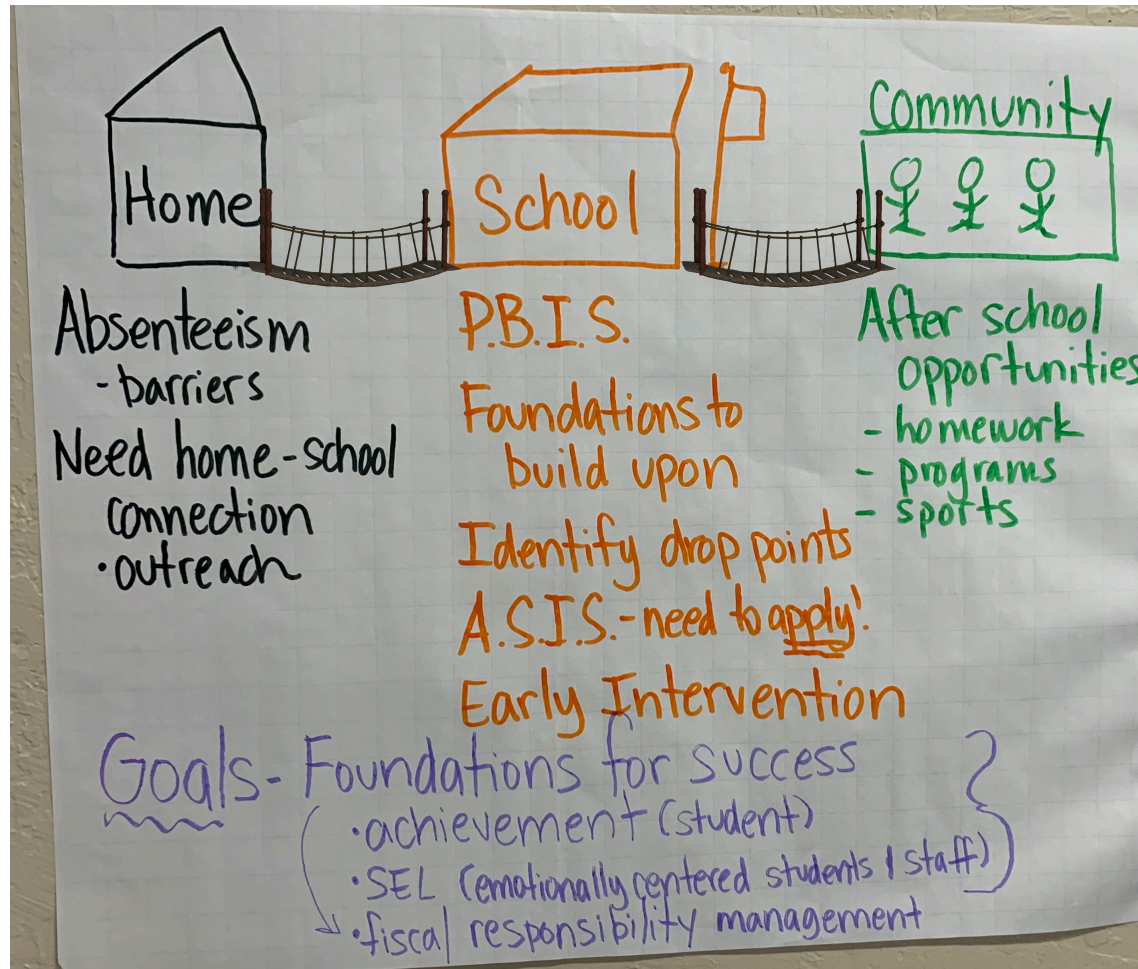 Home
Absenteeism
- barriers
Need home-school
connection
• outreach
School
P.B.I.S.
Foundations to
build upon
Identify drop points
A.S.I.S. - need to apply!
Early Intervention
Community
After school
opportunities
- homework
- programs
- sports
Goals - Foundations for success
• achievement (student)
• SEL (emotionally centered students / staff)
• fiscal responsibility management